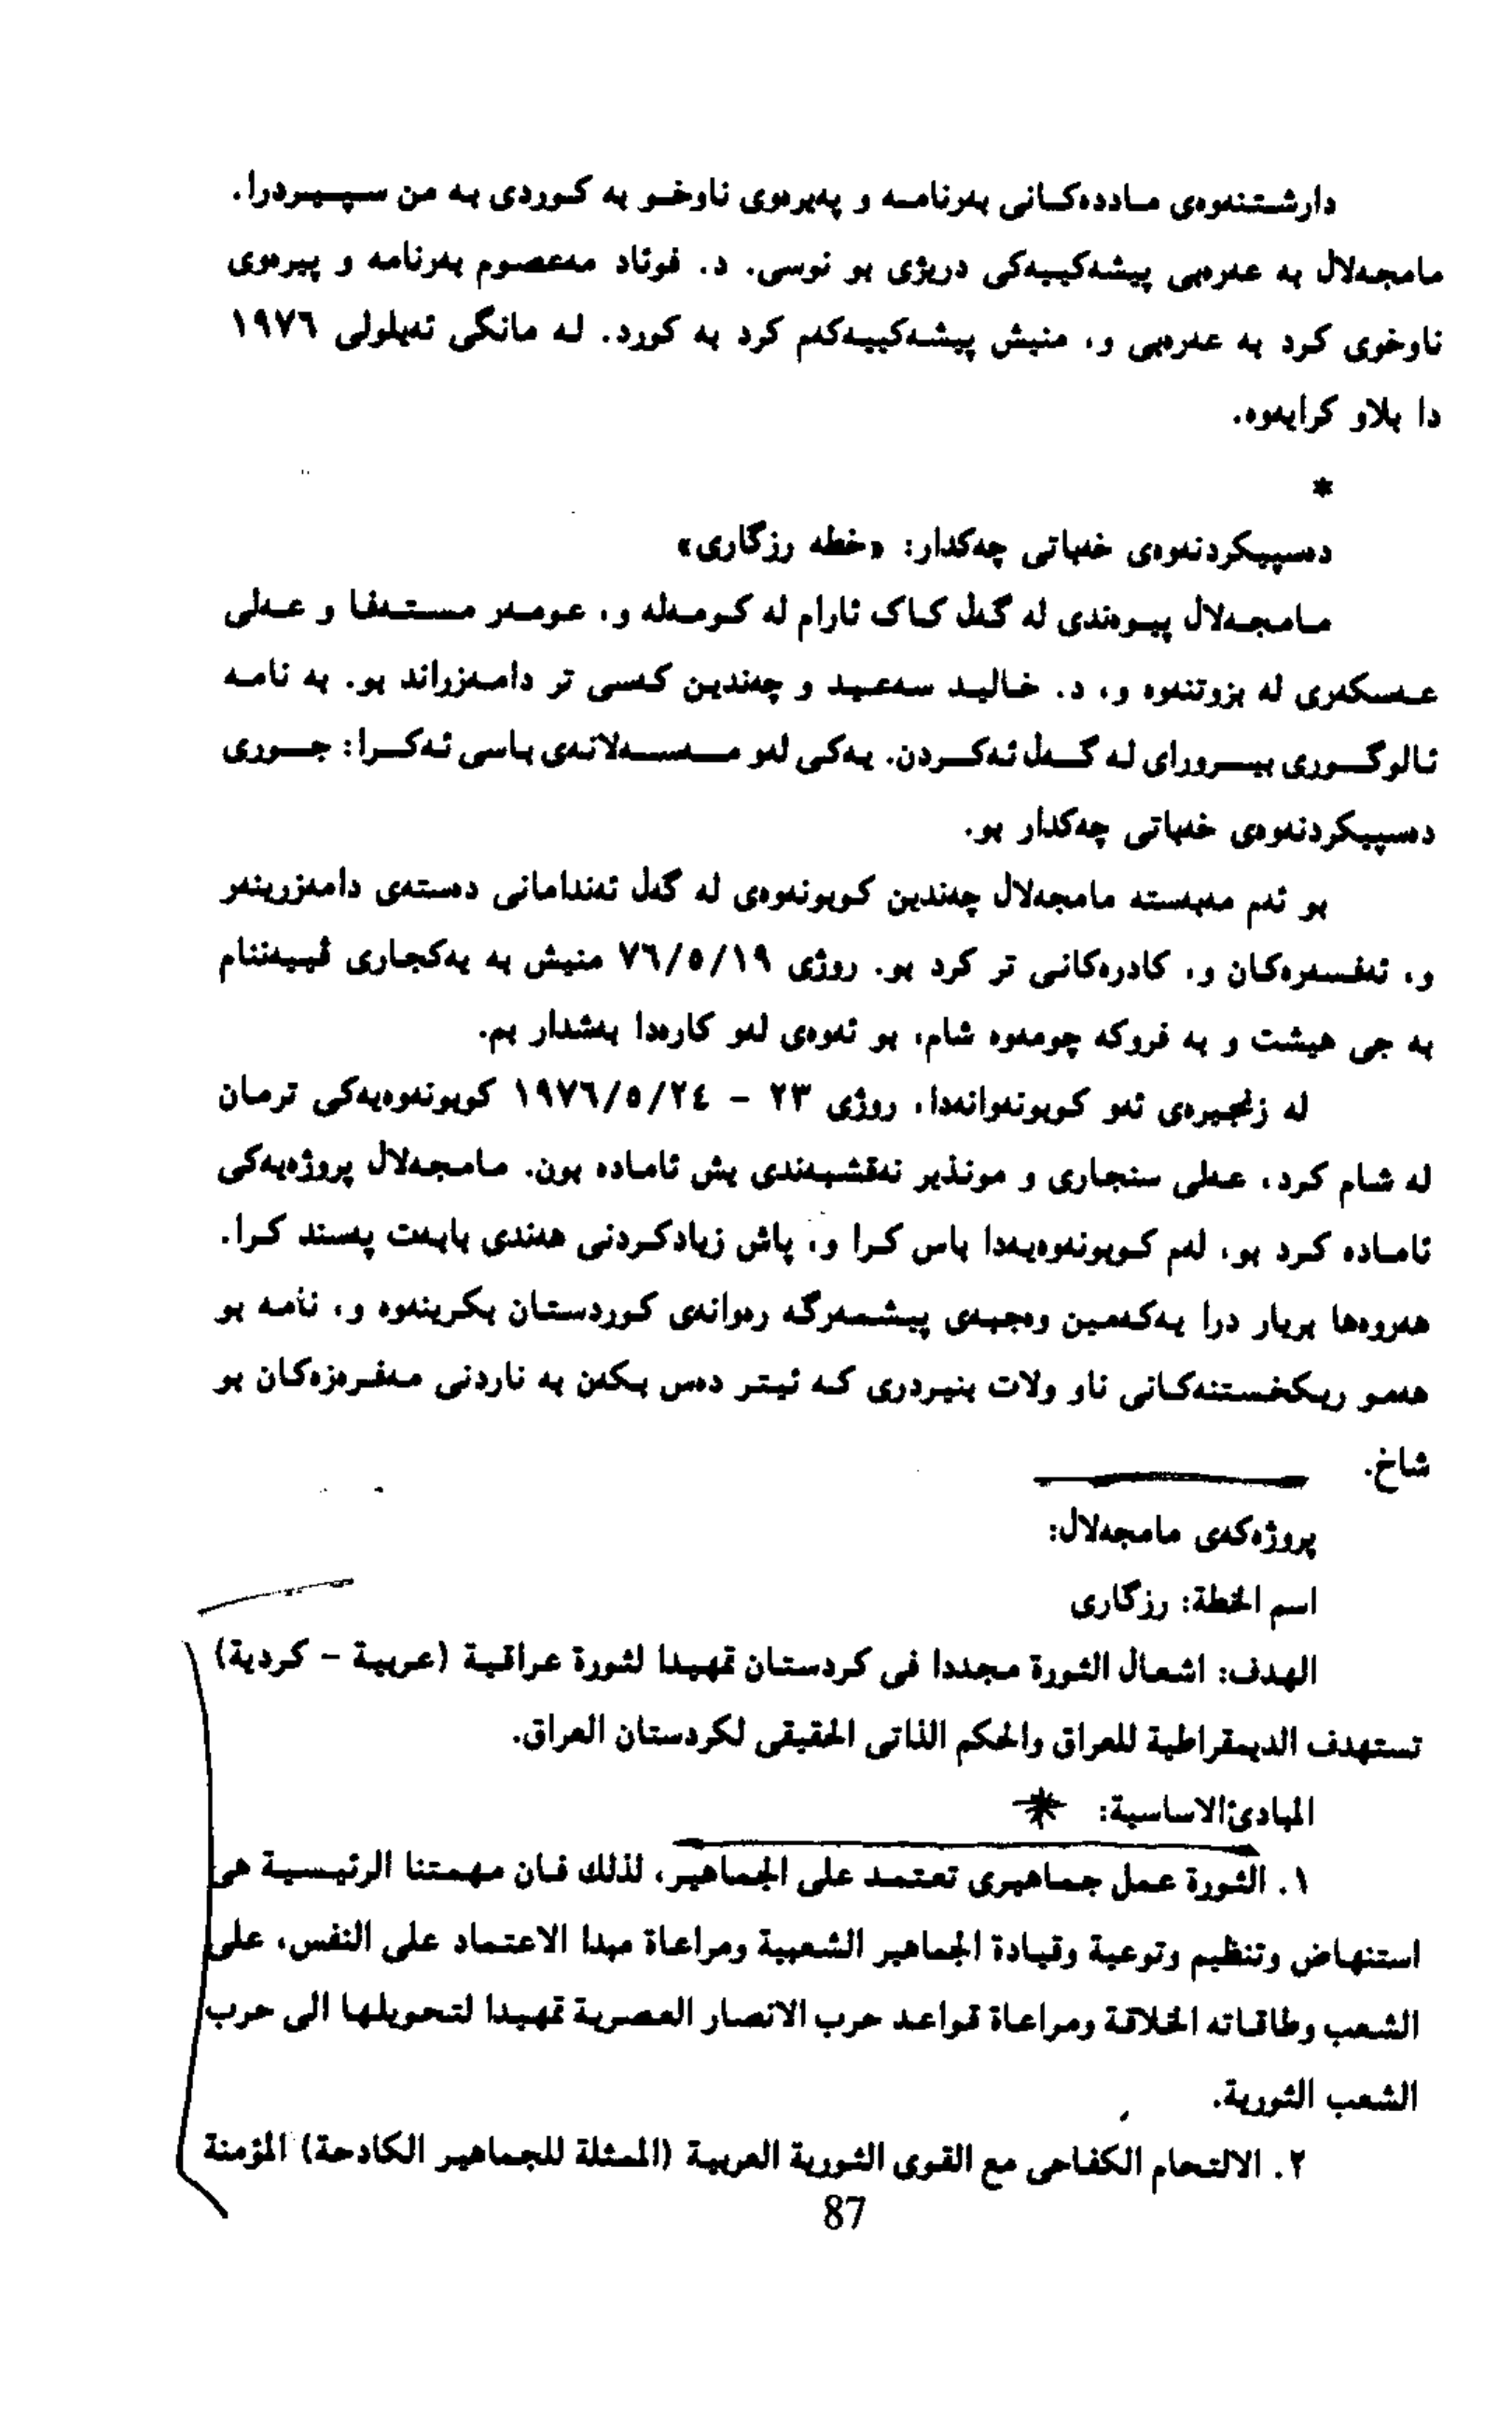 دارشتنەوەی ماددەکانی بەرنامە و پەیرەوی ناوخو بە کوردی بە من سپیردرا.
مامجەلال بە عەرەبی پیشەکییەکی دریژی بو نوسی. د. فوئاد مەعصوم بەرنامە و پیرەوی
ناوخوی کرد بە عەرەبی و، منیش پیشەکییەکەم کرد بە کورد. لە مانگی ئەیلولی ١٩٧٦
دا بلاو کرایەوە.
*
دەسپیکردنەوەی خەباتی چەکدار: «خطە رزگاری»
مامجەلال پیوەندی لە گەل کاک ئارام لە کومەلە و، عومەر مستەفا و عەلی
عەسکەری لە بزوتنەوە و، د. خالید سەعید و چەندین کەسی تر دامەزراند بو. بە نامە
ئالوگوری بیرورای لە گەل ئەکردن. یەکی لەو مەسەلانەی باسی ئەکرا: جوری
دەسپیکردنەوەی خەباتی چەکدار بو.
بو ئەم مەبەستە مامجەلال چەندین کوبونەوەی لە گەل ئەندامانی دەستەی دامەزرینەر
و، ئەفسەرەکان و، کادرەکانی تر کرد بو. روژی ٧٦/٥/١٩ منیش بە یەکجاری ڤییەتنام
بە جی هیشت و بە فروکە چومەوە شام، بو ئەوەی لەو کارەدا بەشدار بم.
لە زنجیرەی ئەو کوبونەوانەدا، روژی ٢٣ - ١٩٧٦/٥/٢٤ کوبونەوەیەکی ترمان
لە شام کرد، عەلی سنجاری و مونذیر نەقشبەندی یش ئامادە بون. مامجەلال پروژەیەکی
ئامادە کرد بو، لەم کوبونەوەیەدا باس کرا و، پاش زیادکردنی هەندی بابەت پەسند کرا.
هەروەها بریار درا یەکەمین وەجبەی پیشمەرگە رەوانەی کوردستان بکرینەوە و، نامە بو
هەمو ریکخستنەکانی ناو ولات بنیردری کە ئیتر دەس بکەن بە ناردنی مەفرەزەکان بو
شاخ.
پروژەکەی مامجەلال:
اسم الخطة: رزگاری
الهدف: اشعال الثورة مجددا فی کردستان تمهیدا لثورة عراقیة (عربیة - کردیة)
تستهدف الدیمقراطیة للعراق والحکم الذاتی الحقیقی لکردستان العراق.
المبادئ الاساسیة: *
١. الثورة عمل جماهیری تعتمد علی الجماهیر، لذلك فان مهمتنا الرئیسیة هی
استنهاض وتنظیم وتوعیة وقیادة الجماهیر الشعبیة ومراعاة مبدا الاعتماد علی النفس، علی
الشعب وطاقاته الخلاقة ومراعاة قواعد حرب الانصار العصریة تمهیدا لتحویلها الی حرب
الشعب الثوریة.
٢. الالتحام الکفاحی مع القوی الثوریة العربیة (الممثلة للجماهیر الکادحة) المؤمنة
87